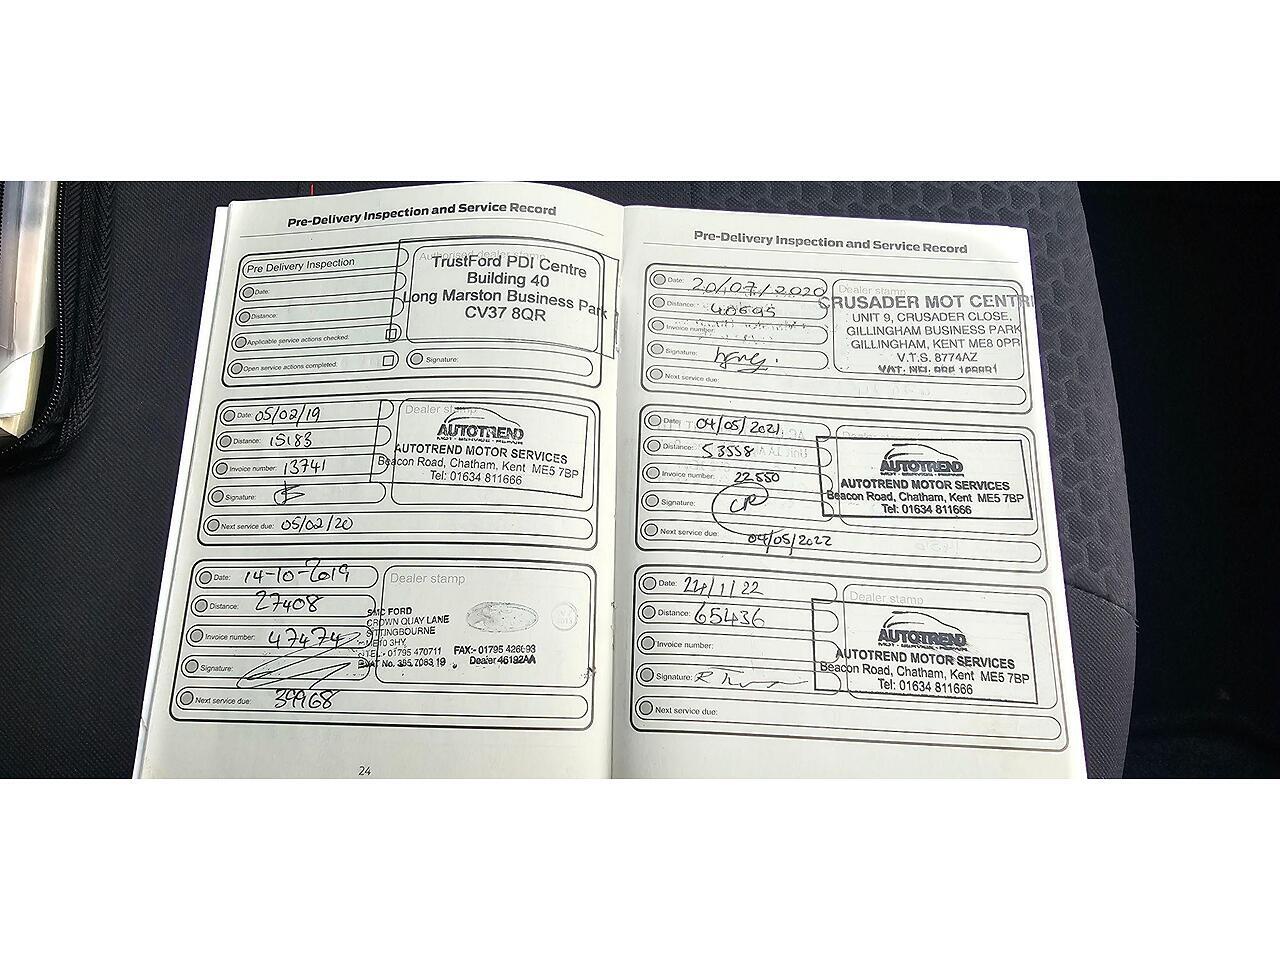 Pre-Delivery Inspection and Service Record
Pre Delivery Inspection
Date:
Distance:
Applicable service actions checked:
Open service actions completed:
TrustFord PDI Centre
Building 40
Long Marston Business Park
CV37 8QR
Signature:
Date: 05/02/19
Distance: 15183
Invoice number: 13741
Signature:
Next service due: 05/02/20
Dealer stamp
AUTOTREND
MOT - SERVICE - REPAIR
AUTOTREND MOTOR SERVICES
Beacon Road, Chatham, Kent ME5 7BP
Tel: 01634 811666
Date: 14-10-2019
Distance: 27408
Invoice number: 47474
Signature:
Next service due: 39968
Dealer stamp
SMC FORD
CROWN QUAY LANE
SITTINGBOURNE
ME10 3HY
TEL:- 01795 470711
VAT No. 385 7083 19
Dealer 46192AA
24
Pre-Delivery Inspection and Service Record
Date: 20/07/2020
Distance: 40695
Invoice number:
Signature:
Next service due:
Dealer stamp
CRUSADER MOT CENTRE
UNIT 9, CRUSADER CLOSE,
GILLINGHAM BUSINESS PARK
GILLINGHAM, KENT ME8 0PR
V.T.S. 8774AZ
Date: 04/05/2021
Distance: 53558
Invoice number: 22550
Signature: CR
Next service due: 04/05/2022
AUTOTREND
MOT - SERVICE - REPAIR
AUTOTREND MOTOR SERVICES
Beacon Road, Chatham, Kent ME5 7BP
Tel: 01634 811666
Date: 24/1/22
Distance: 65436
Invoice number:
Signature:
Next service due:
Dealer stamp
AUTOTREND
MOT - SERVICE - REPAIR
AUTOTREND MOTOR SERVICES
Beacon Road, Chatham, Kent ME5 7BP
Tel: 01634 811666